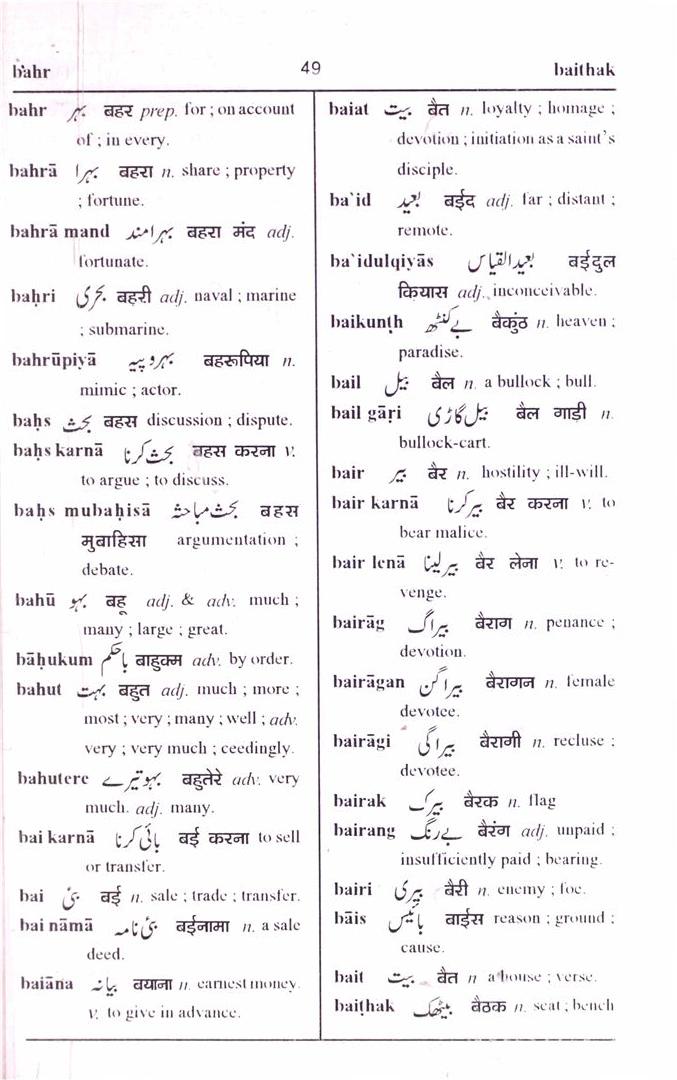 bahr 49 baithak
bahr بہر बहर prep. for ; on account
of ; in every.
bahrā بہرا बहरा n. share ; property
; fortune.
bahrā mand بہرامند बहरा मंद adj.
fortunate.
baḥri بحری बहरी adj. naval ; marine
; submarine.
bahrūpiyā بہروپیہ बहरूपिया n.
mimic ; actor.
baḥs بحث बहस discussion ; dispute.
baḥs karnā بحث کرنا बहस करना v.
to argue ; to discuss.
baḥs mubaḥisā بحث مباحثہ बहस
मुबाहिसा argumentation ;
debate.
bahū بہو बहू adj. & adv. much ;
many ; large ; great.
bāḥukum باحکم बाहुक्म adv. by order.
bahut بہت बहुत adj. much ; more ;
most ; very ; many ; well ; adv.
very ; very much ; ceedingly.
bahutere بہوتیرے बहुतेरे adv. very
much. adj. many.
bai karnā بائی کرنا बई करना to sell
or transfer.
bai بئی बई n. sale ; trade ; transfer.
bai nāmā بئی نامہ बईनामा n. a sale
deed.
baiāna بیانہ बयाना n. earnest money.
v. to give in advance.
baiat بیت बैत n. loyalty ; homage ;
devotion ; initiation as a saint's
disciple.
ba`id بعید बईद adj. far ; distant ;
remote.
ba`idulqiyās بعیدالقیاس बईदुल
कियास adj. inconceivable.
baikunṭh بےکنٹھ बैकुंठ n. heaven ;
paradise.
bail بیل बैल n. a bullock ; bull.
bail gāṛi بیل گاڑی बैल गाड़ी n.
bullock-cart.
bair بیر बैर n. hostility ; ill-will.
bair karnā بیر کرنا बैर करना v. to
bear malice.
bair lenā بیر لینا बैर लेना v. to re-
venge.
bairāg بیراگ बैराग n. penance ;
devotion.
bairāgan بیراگن बैरागन n. female
devotee.
bairāgi بیراگی बैरागी n. recluse ;
devotee.
bairak بیرک बैरक n. flag
bairang بےرنگ बैरंग adj. unpaid ;
insufficiently paid ; bearing.
bairi بیری बैरी n. enemy ; foe.
bāis بائیس बाईस reason ; ground ;
cause.
bait بیت बैत n a house ; verse.
baiṭhak بیٹھک बैठक n. seat ; bench